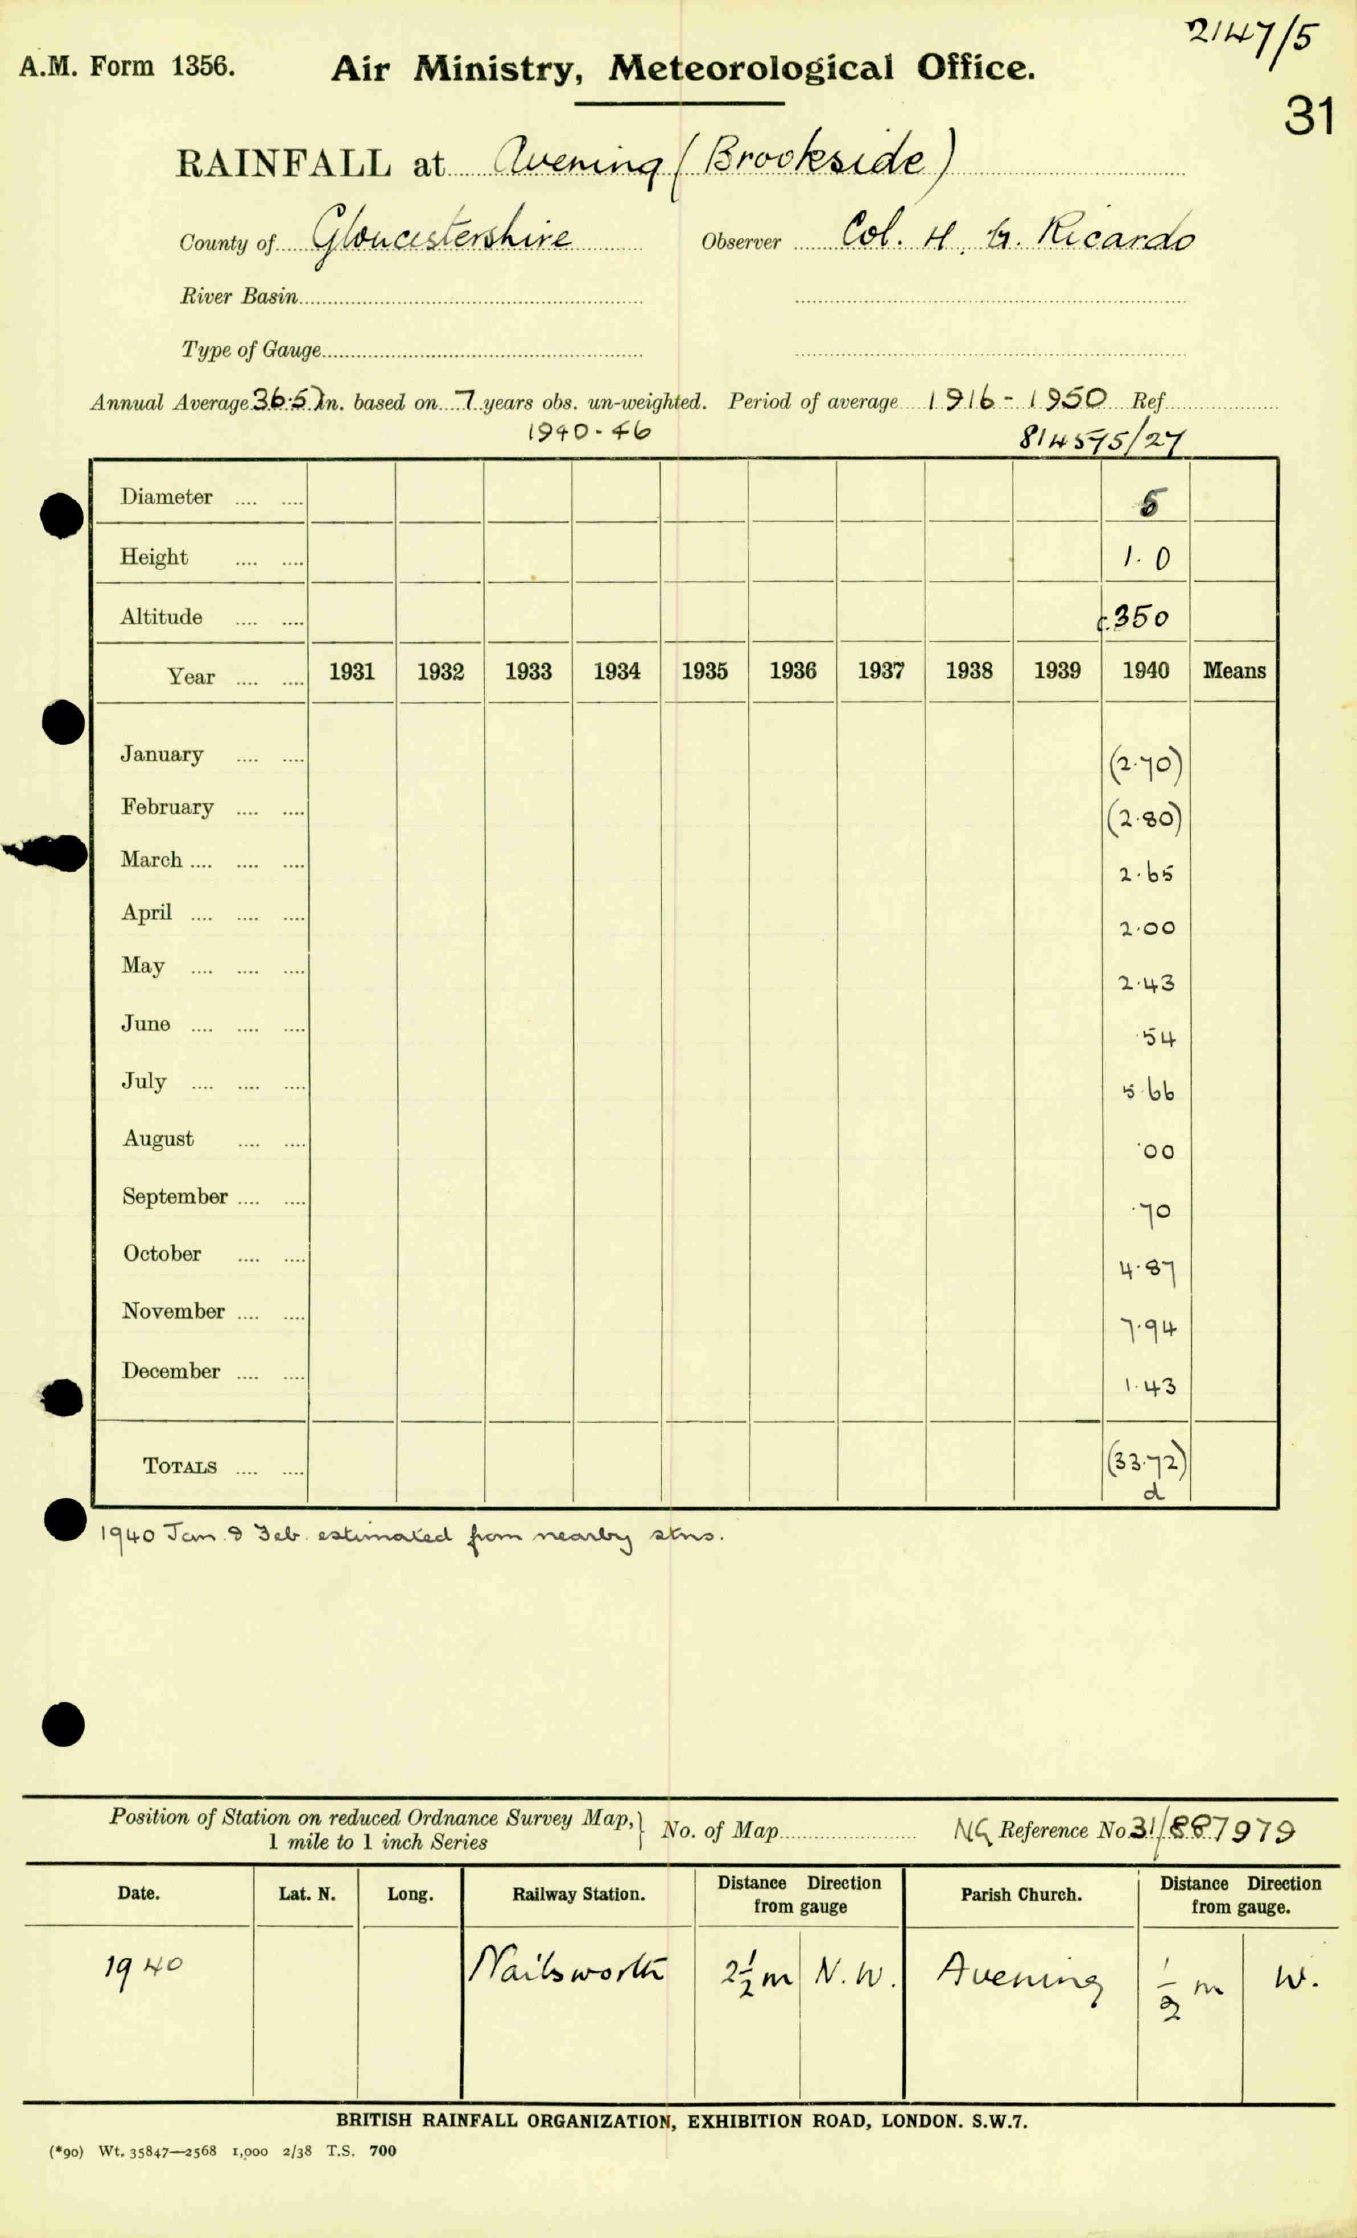 2147/5
A.M. Form 1356. Air Ministry, Meteorological Office.
31
RAINFALL at Avening (Brookside)
County of Gloucestershire Observer Col. H. G. Ricardo
River Basin
Type of Gauge
Annual Average 36.57 In. based on 7 years obs. un-weighted. Period of average 1916 - 1950 Ref.
1940-46 814575/27
Diameter .... .... 5
Height .... .... 1.0
Altitude .... .... c.350
Year .... .... 1931 1932 1933 1934 1935 1936 1937 1938 1939 1940 Means
January .... .... (2.70)
February .... .... (2.80)
March .... .... .... 2.65
April .... .... .... 2.00
May .... .... .... 2.43
June .... .... .... .54
July .... .... .... 5.66
August .... .... .00
September .... .... .70
October .... .... 4.87
November .... .... 7.94
December .... .... 1.43
TOTALS .... .... (33.72)
d
1940 Jan & Feb. estimated from nearby stns.
Position of Station on reduced Ordnance Survey Map,
1 mile to 1 inch Series } No. of Map NG Reference No 31/887979
Date. Lat. N. Long. Railway Station. Distance Direction from gauge Parish Church. Distance Direction from gauge.
1940 Nailsworth 2½ m N.W. Avening ½ m W.
BRITISH RAINFALL ORGANIZATION, EXHIBITION ROAD, LONDON. S.W.7.
(*90) Wt. 35847—2568 1,000 2/38 T.S. 700